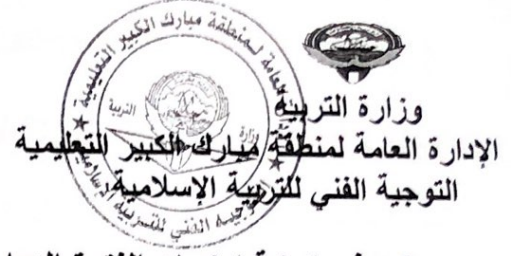 وزارة التربية
الإدارة العامة لمنطقة مبارك الكبير التعليمية
التوجية الفني للتربية الإسلامية
العامة لمنطقة مبارك الكبير التعليمية
وزارة التربية
التوجيه الفني للتربية الإسلامية